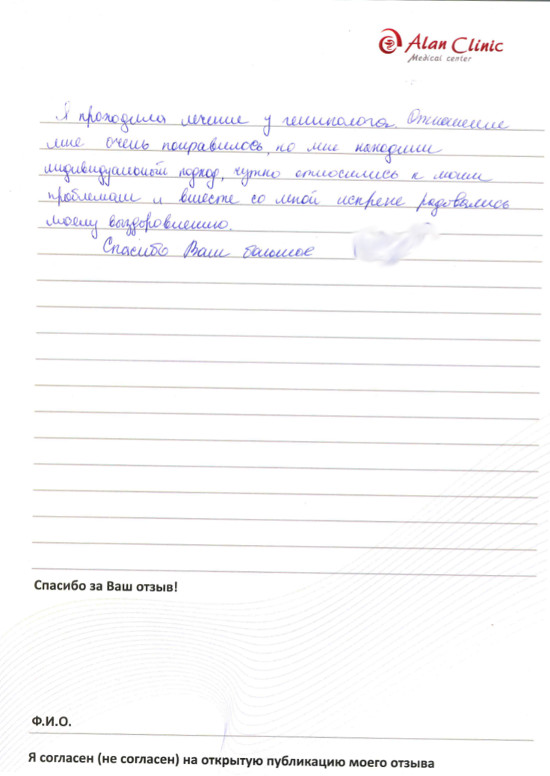 Alan Clinic
Medical center
Я проходила лечение у гепинолога. Отношение
мне очень понравилось, ко мне находили
индивидуальный подход, чутко относились к моим
проблемам и вместе со мной искрене радовались
моему выздоровлению.
Спасибо Вам большое
Спасибо за Ваш отзыв!
Ф.И.О.
Я согласен (не согласен) на открытую публикацию моего отзыва